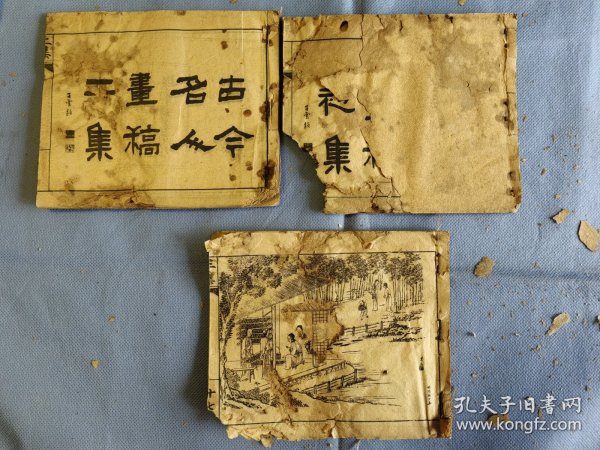 古今
名人
畫稿
二集
初集
十七
孔夫子旧书网
www.kongfz.com